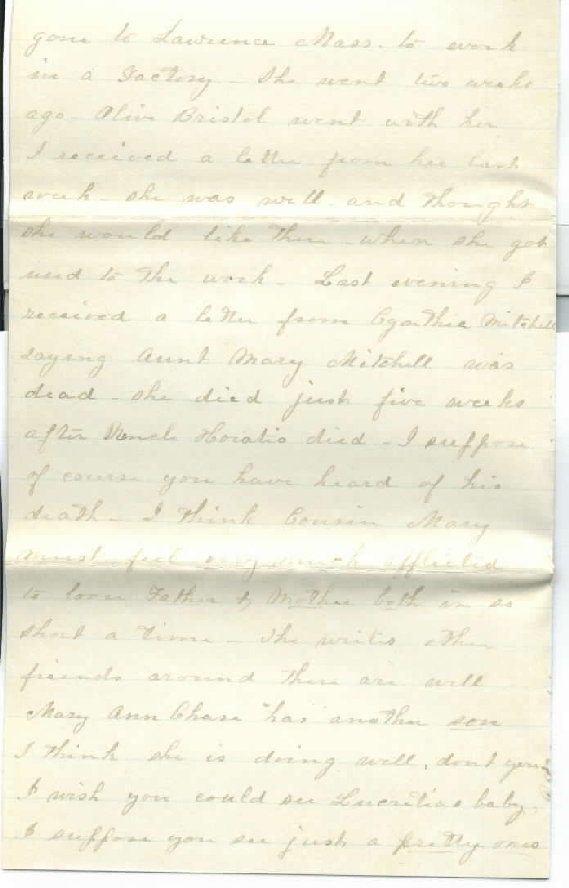 gone to Lawrence Mass. to work
in a Factory - She went two weeks
ago - Olive Bristol went with her
I received a letter from her last
week - she was well - and thought
she would like there - when she got
used to the work - Last evening I
received a letter from Cynthia Mitchell
sayeng Aunt Mary Mitchell was
dead - she died just five weeks
after Uncle Horatio died - I suppose
of course you have heard of his
death - I think Cousin Mary
must feel very much afflicted
to loose Father & Mother both in so
short a time - She writes other
friends around there are well
Mary Ann Chase has another son
I think she is doing well, dont you
I wish you could see Lucretias baby.
I suppose you see just a pretty ones